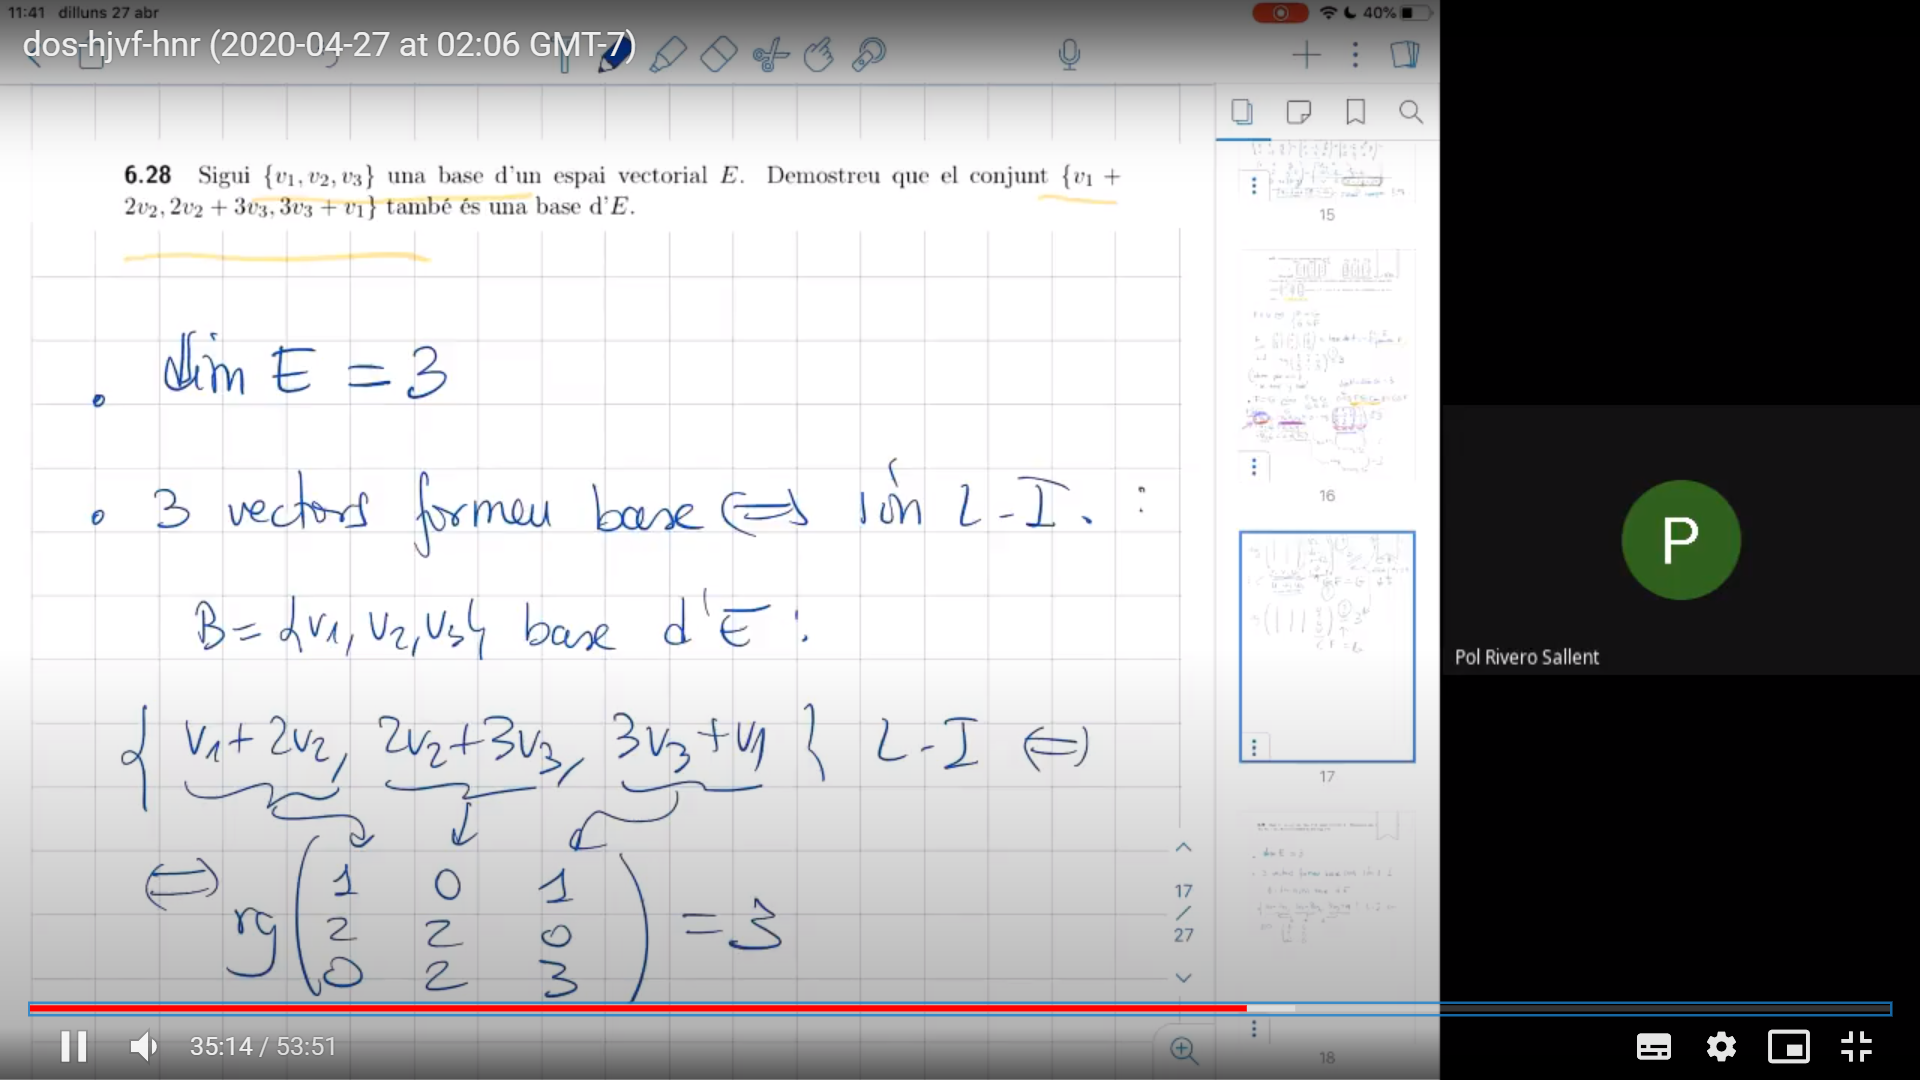 11:41 dilluns 27 abr
40%
dos-hjvf-hnr (2020-04-27 at 02:06 GMT-7)
6.28 Sigui {v₁, v₂, v₃} una base d'un espai vectorial E. Demostreu que el conjunt {v₁ +
2v₂, 2v₂ + 3v₃, 3v₃ + v₁} també és una base d'E.
• dim E = 3
• 3 vectors formeu base ⇔ són L-I. :
B = {v1, v2, v3} base d'E :
{ v1+2v2, 2v2+3v3, 3v3+v1 } L-I ⇔
⇔ rg ( 1 0 1
2 2 0
0 2 3 ) = 3
15
16
17
18
17
/
27
P
Pol Rivero Sallent
35:14 / 53:51